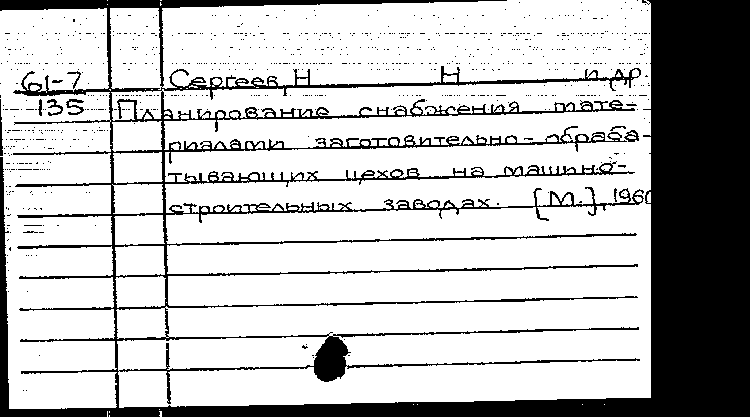 61-7 Сергеев, Н Н и др.
135 Планирование снабжения мате-
риалами заготовительно-обраба-
тывающих цехов на машино-
строительных заводах. [М.], 1960